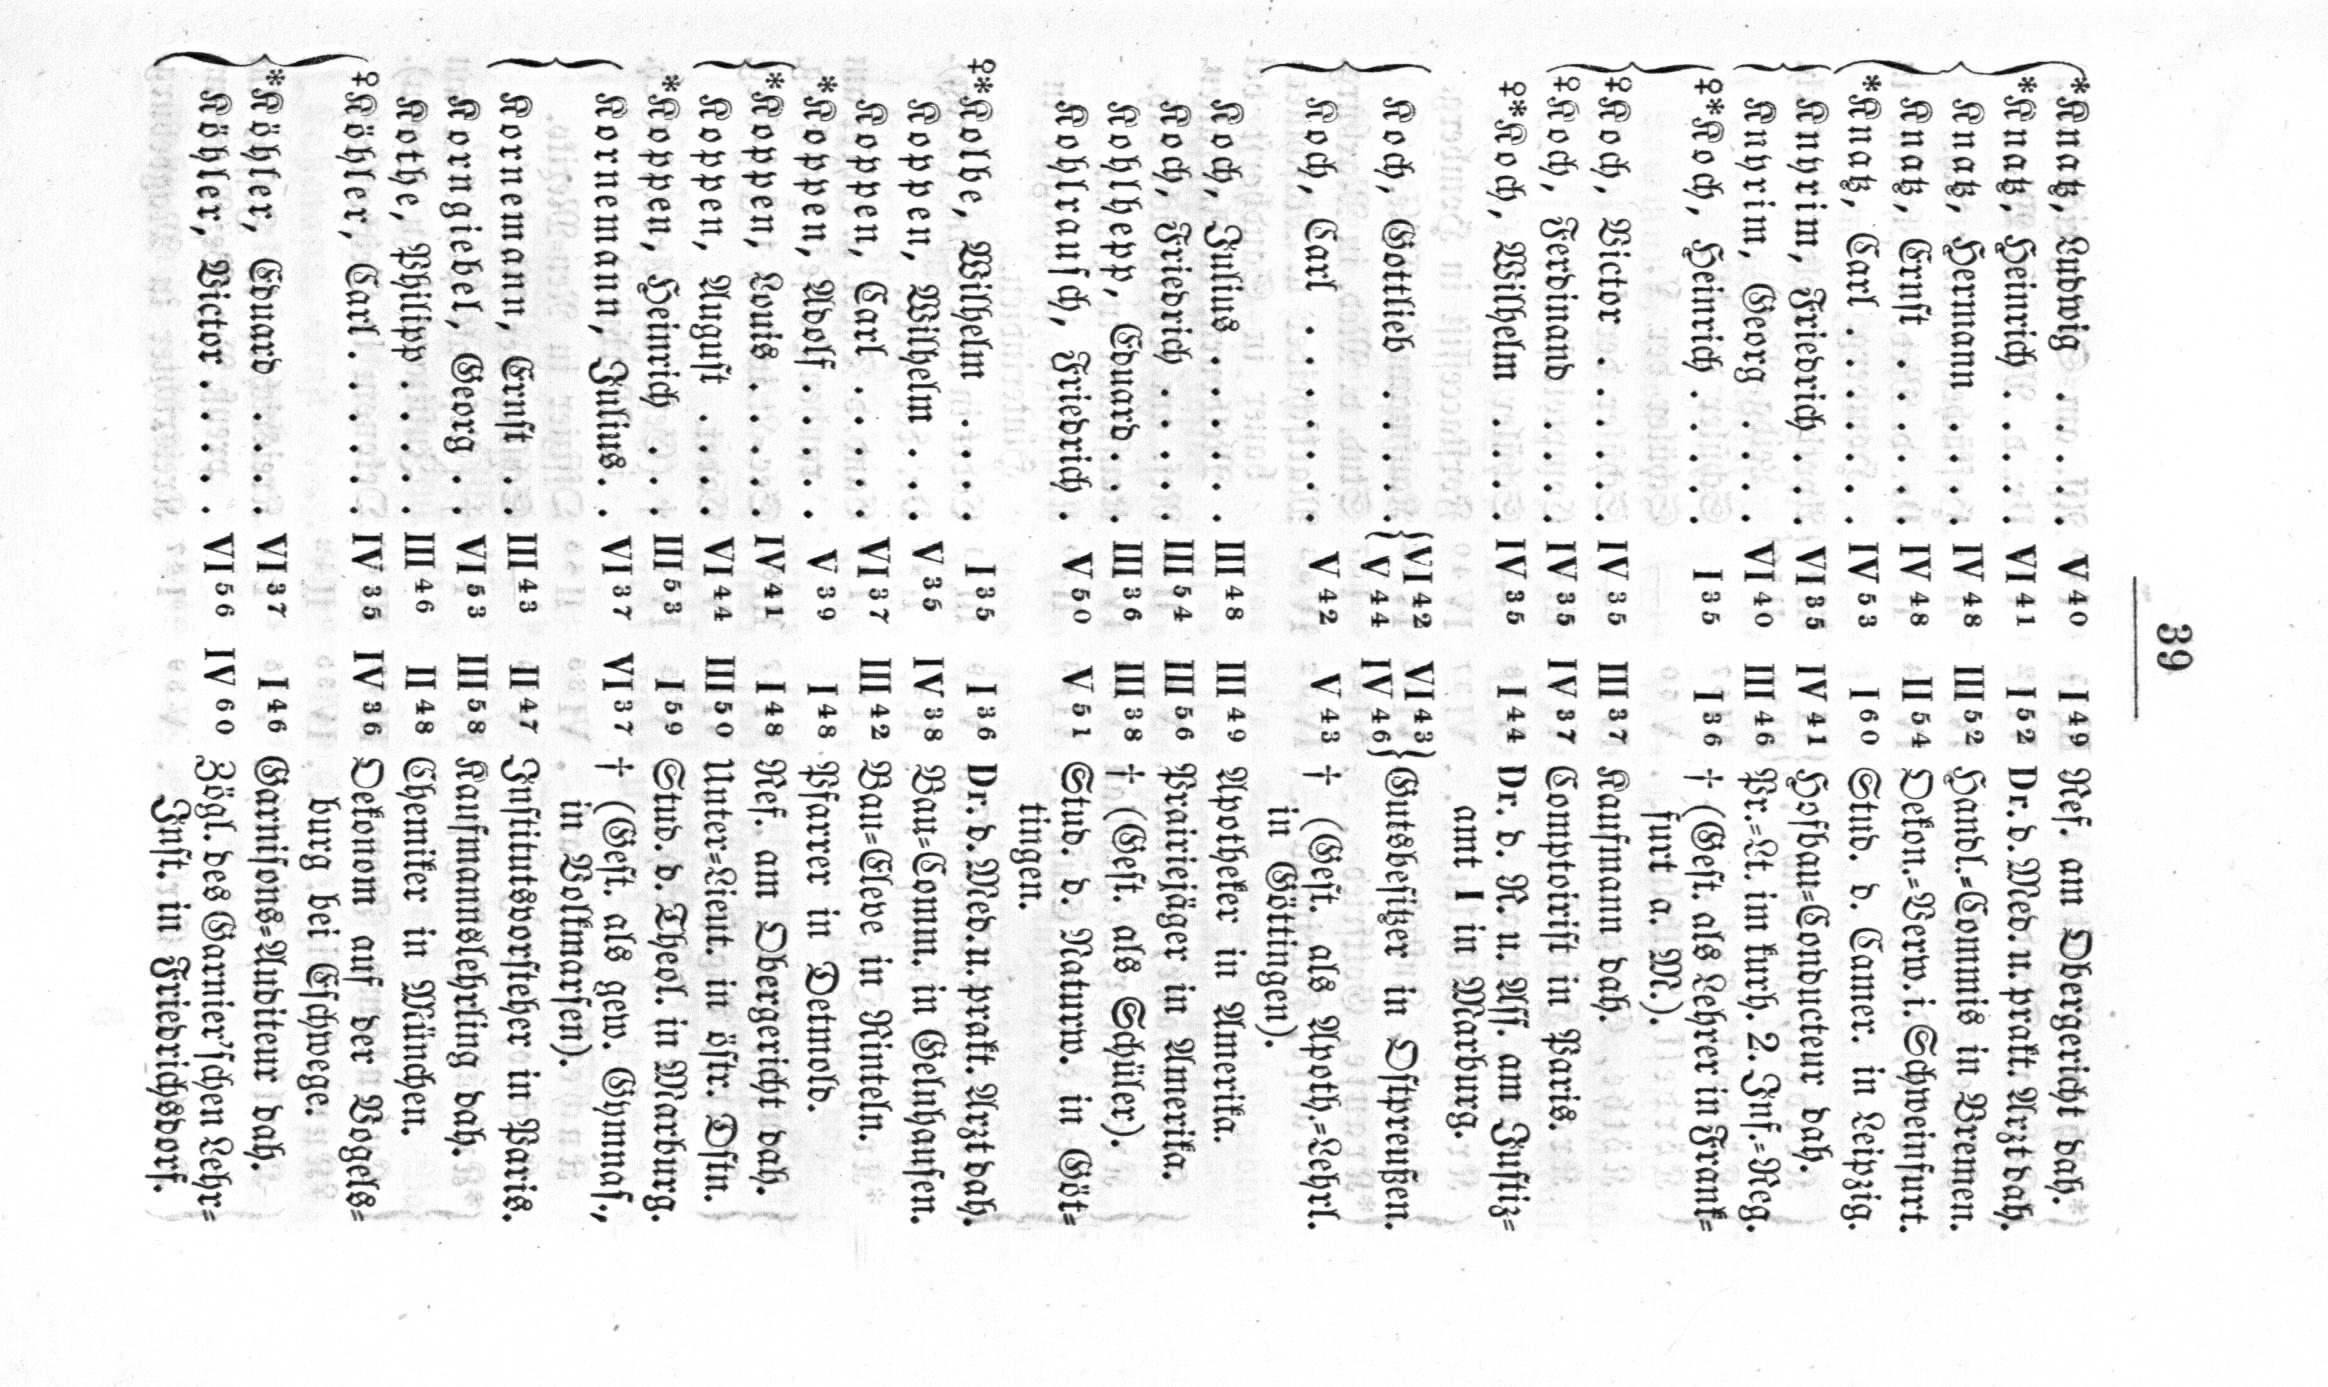 39
*Knatz, Ludwig . . . . V 40 I 49 Ref. am Obergericht das.
*Knatz, Heinrich . . . . VI 41 I 52 Dr. d. Med. u. prakt. Arzt das.
Knatz, Hermann . . . . IV 48 III 52 Handl.=Commis in Bremen.
Knatz, Ernst . . . . . IV 48 II 54 Oekon.=Verw. i. Schweinfurt.
*Knatz, Carl . . . . . . IV 53 I 60 Stud. d. Camer. in Leipzig.
Knyrim, Friedrich . . . VI 35 IV 41 Hofbau=Conducteur das.
Knyrim, Georg . . . . VI 40 III 46 Pr.=Lt. im kurh. 2. Inf.=Reg.
♀*Koch, Heinrich . . . . . I 35 I 36 † (Gest. als Lehrer in Frank=
furt a. M.).
♀Koch, Victor . . . . . IV 35 III 37 Kaufmann das.
♀Koch, Ferdinand . . . . IV 35 IV 37 Comptoirist in Paris.
♀*Koch, Wilhelm . . . . IV 35 I 44 Dr. d. R. u. Ass. am Justiz=
amt I in Marburg.
Koch, Gottlieb . . . . . {VI 42 VI 43} {V 44 IV 46} Gutsbesitzer in Ostpreußen.
Koch, Carl . . . . . . V 42 V 43 † (Gest. als Apoth.=Lehrl.
in Göttingen).
Koch, Julius . . . . . III 48 III 49 Apotheker in Amerika.
Koch, Friedrich . . . . . III 54 III 56 Prairiejäger in Amerika.
Kohlhepp, Eduard . . . III 36 III 38 † (Gest. als Schüler).
Kohlrausch, Friedrich . . V 50 V 51 Stud. d. Naturw. in Göt=
tingen.
♀*Kolbe, Wilhelm . . . . I 35 I 36 Dr. d. Med. u. prakt. Arzt das.
Koppen, Wilhelm . . . V 35 IV 38 Bau=Comm. in Gelnhausen.
Koppen, Carl . . . . . VI 37 III 42 Bau=Eleve in Rinteln.
*Koppen, Adolf . . . . . V 39 I 48 Pfarrer in Detmold.
*Koppen, Louis . . . . . IV 41 I 48 Ref. am Obergericht das.
Koppen, August . . . . VI 44 III 50 Unter=Lieut. in östr. Dstn.
*Koppen, Heinrich . . . III 53 I 59 Stud. d. Theol. in Marburg.
Kornemann, Julius . . VI 37 VI 37 † (Gest. als gew. Gymnas.,
in Volkmarsen).
Kornemann, Ernst . . III 43 II 47 Institutsvorsteher in Paris.
Korngiebel, Georg . . VI 53 III 58 Kaufmannslehrling das.
Kothe, Philipp . . . . . III 46 II 48 Chemiker in München.
♀Köhler, Carl . . . . . . IV 35 IV 36 Oekonom auf der Vogels=
burg bei Eschwege.
*Köhler, Eduard . . . . VI 37 I 46 Garnisons=Auditeur das.
Köhler, Victor . . . . . VI 56 IV 60 Zögl. des Garnier'schen Lehr=
Inst. in Friedrichsdorf.